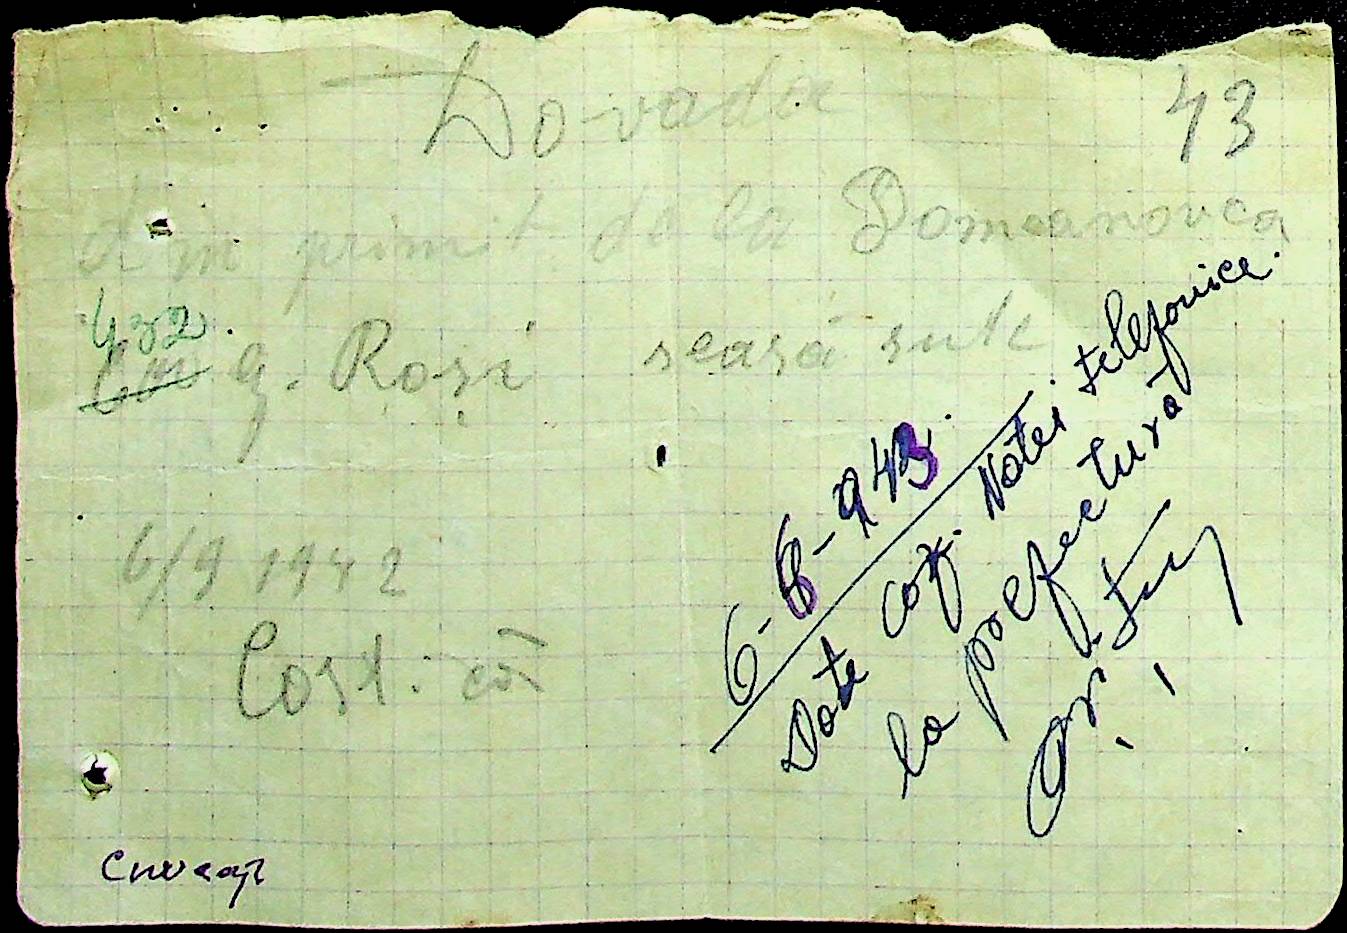 Dovada
43
Am primit de la Domeanovca
432.
q. Roși seasă sute
6/9 1942
Cost:
6-8-943.
Date cop. Notei telefonice.
la prefectură
список